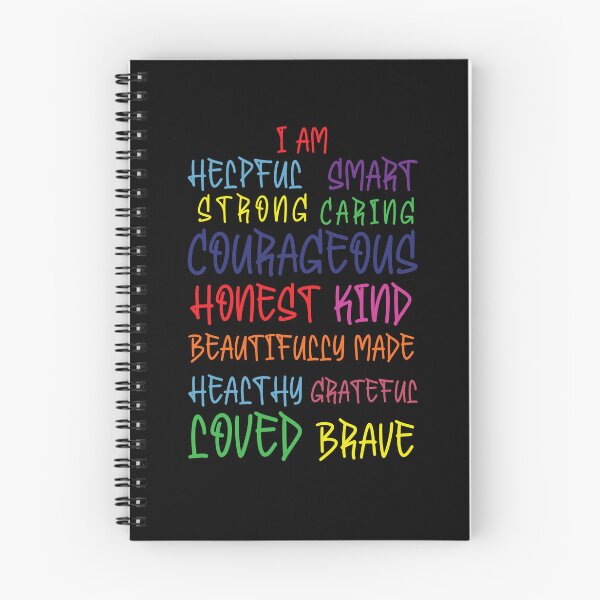 I AM
HELPFUL SMART
STRONG CARING
COURAGEOUS
HONEST KIND
BEAUTIFULLY MADE
HEALTHY GRATEFUL
LOVED BRAVE